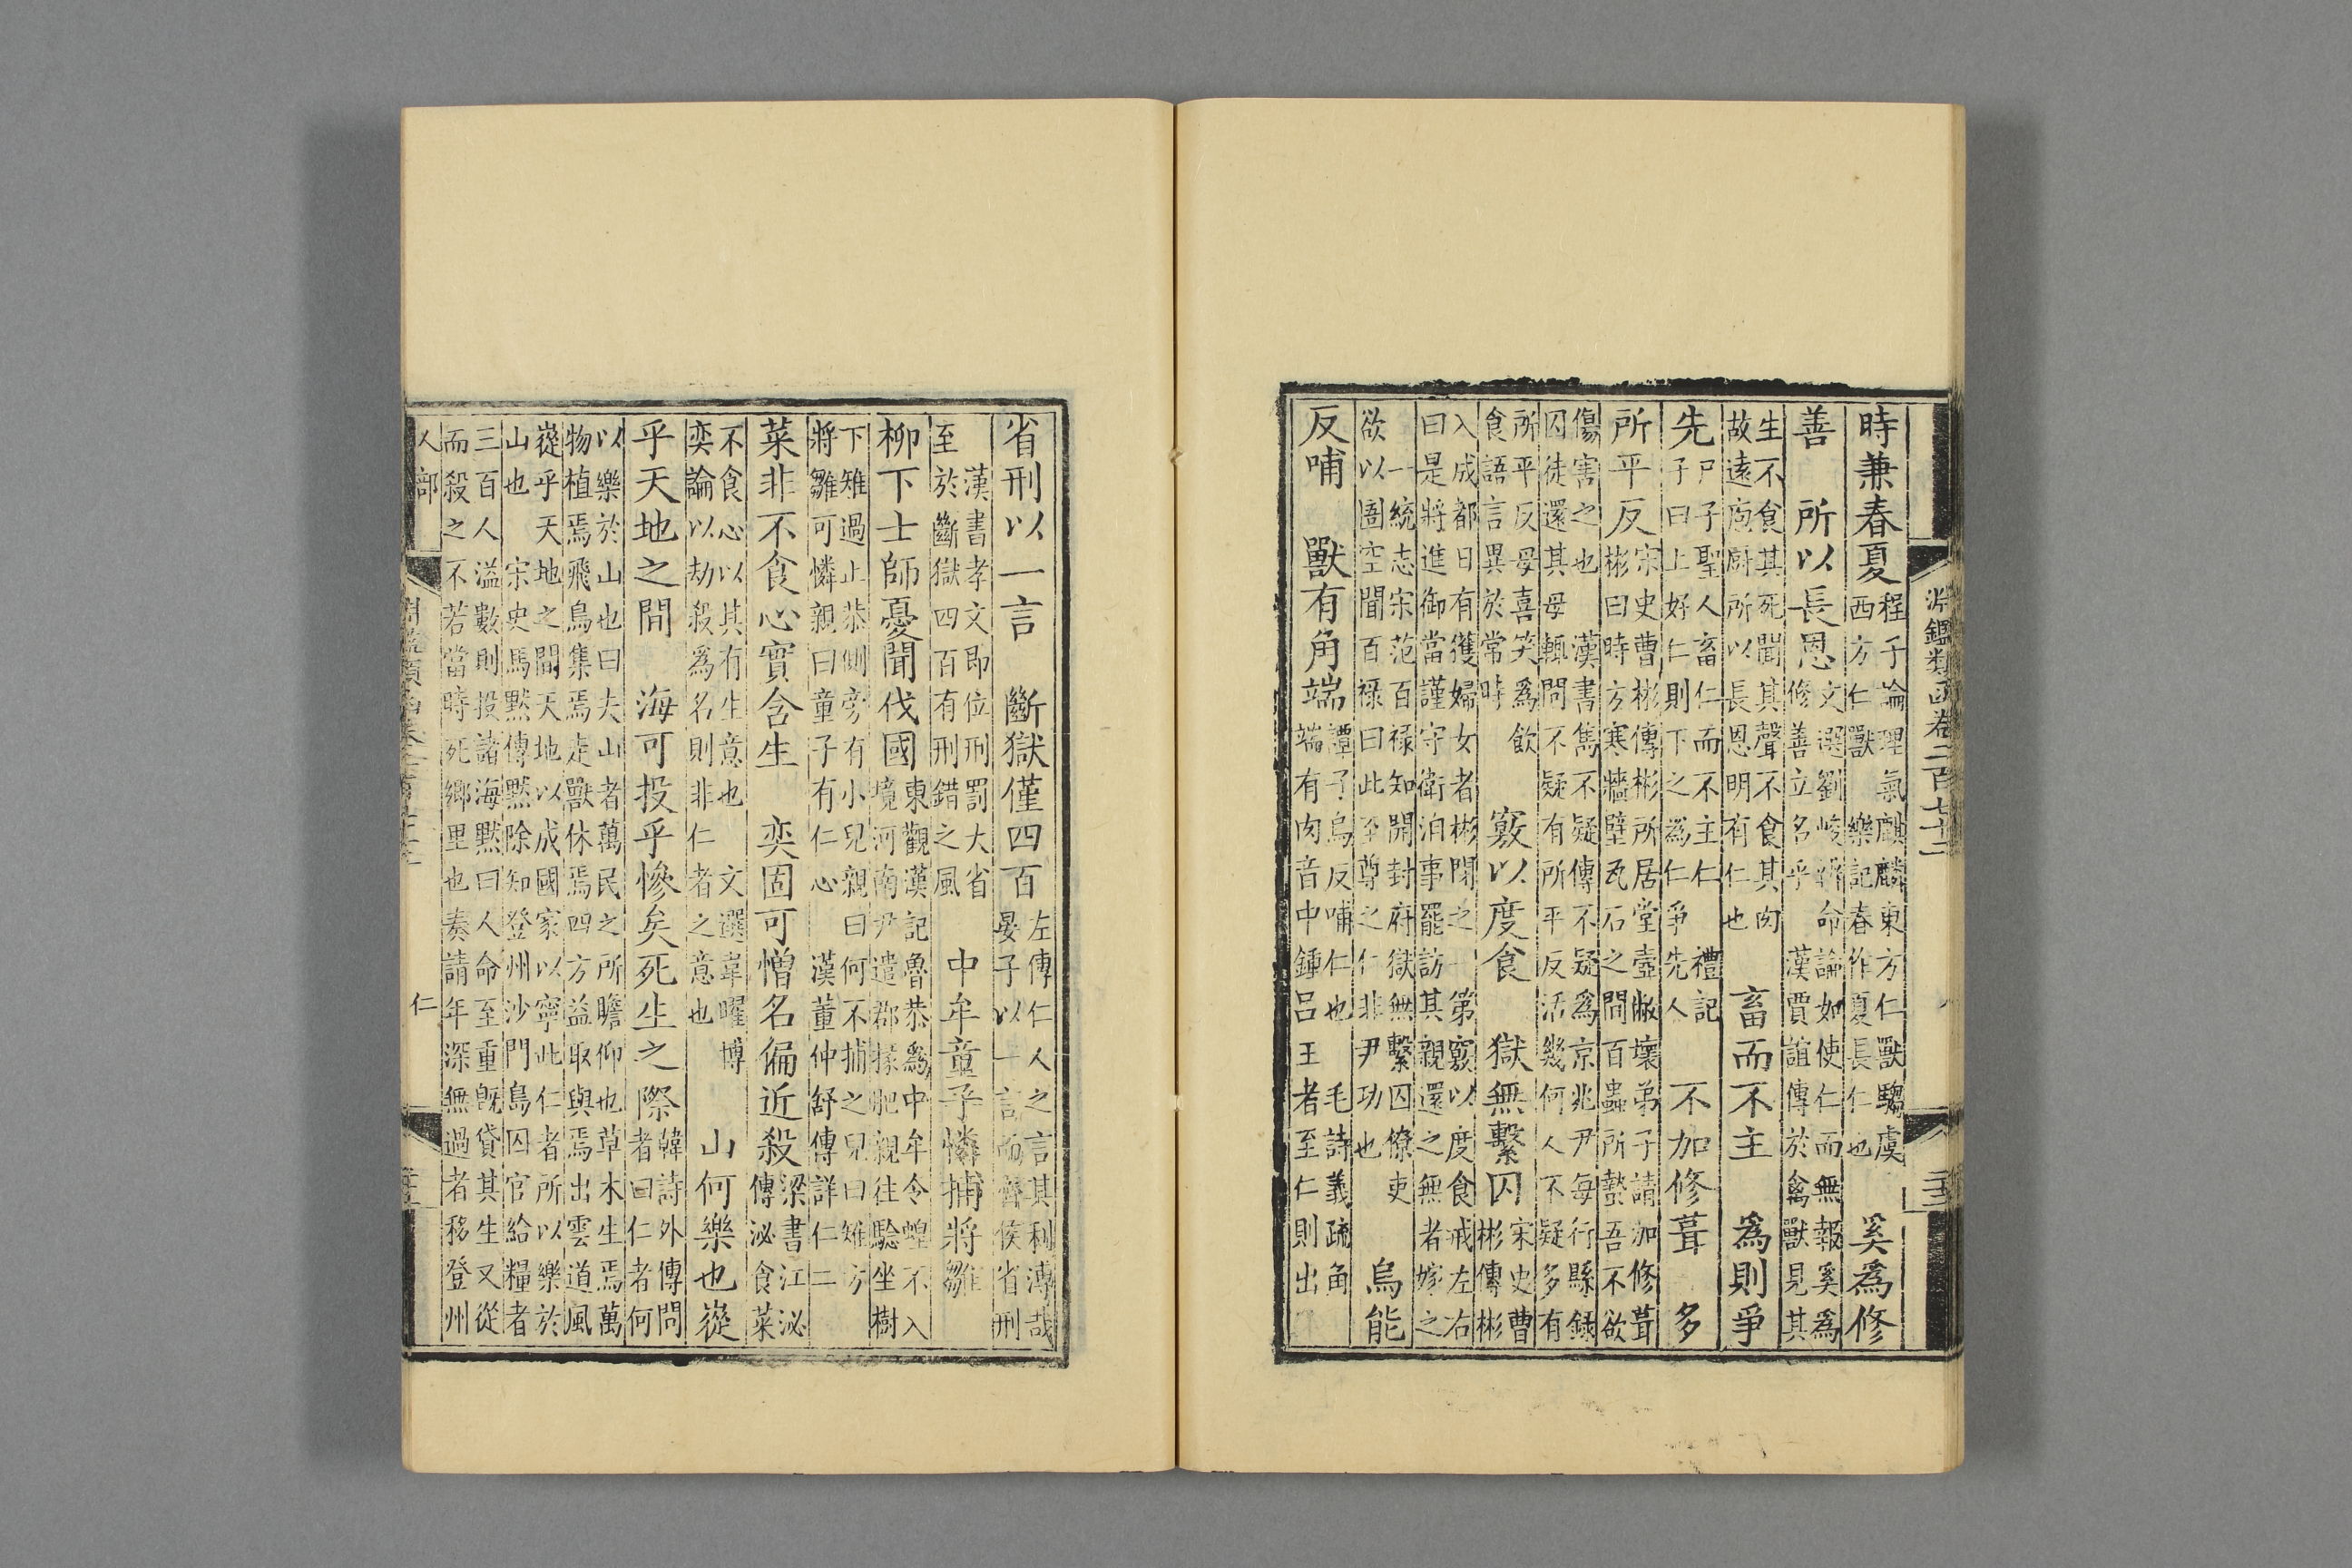 淵鑑類函卷二百七十二
時兼春夏程子論理氣麒麟東方仁獸騶虞
西方仁獸 樂記春作夏長仁也 奚為修
善 所以長恩文選劉峻辨命論如使仁而無報奚爲
修善立名乎 漢賈誼傳於禽獸見其
生不食其死聞其聲不食其肉
故遠庖廚所以長恩明有仁也 畜而不主 爲則爭
先尸子聖人畜仁而不主仁 禮記
子曰上好仁則下之為仁爭先人 不加修葺 多
所平反宋史曹彬傳彬所居堂壺敝壞弟子請加修葺
彬曰時方寒牆壁瓦石之間百蟲所蟄吾不欲
傷害之也 漢書雋不疑傳不疑爲京兆尹每行縣錄
囚徒還其母輒問不疑有所平反活幾何人不疑多有
所平反母喜笑爲飲
食語言異於常時 竅以度食 獄無繫囚宋史曹
彬傳彬
入成都日有獲婦女者彬閉之一第竅以度食戒左右
曰是將進御當謹守衛洎事罷訪其親還之無者嫁之
一統志宋范百祿知開封府獄無繫囚僚吏
欲以圄空聞百祿曰此至尊之仁非尹功也 烏能
反哺 獸有角端譚子烏反哺仁也 毛詩義疏角
端有肉音中鍾呂王者至仁則出
省刑以一言 斷獄僅四百左傳仁人之言其利溥哉
晏子以一言而齊侯省刑
漢書孝文即位刑罰大省
至於斷獄四百有刑錯之風 中牟童子憐捕將雛
柳下士師憂聞伐國東觀漢記魯恭爲中牟令蝗不入
境河南尹遣郡掾肥親往驗坐樹
下雉過止恭側旁有小兒親曰何不捕之兒曰雉方
將雛可憐親曰童子有仁心 漢董仲舒傳詳仁二
菜非不食心實含生 奕固可憎名偏近殺梁書江泌
傳泌食菜
不食心以其有生意也 文選韋曜博
奕論以劫殺爲名則非仁者之意也 山何樂也嵸
乎天地之間 海可投乎慘矣死生之際韓詩外傳問
者曰仁者何
以樂於山也曰夫山者萬民之所瞻仰也草木生焉萬
物植焉飛鳥集焉走獸休焉四方益取與焉出雲道風
嵸乎天地之間天地以成國家以寧此仁者所以樂於
山也 宋史馬默傳默除知登州沙門島囚官給糧者
三百人溢數則投諸海默曰人命至重旣貸其生又從
而殺之不若當時死鄉里也奏請年深無過者移登州
人部 仁